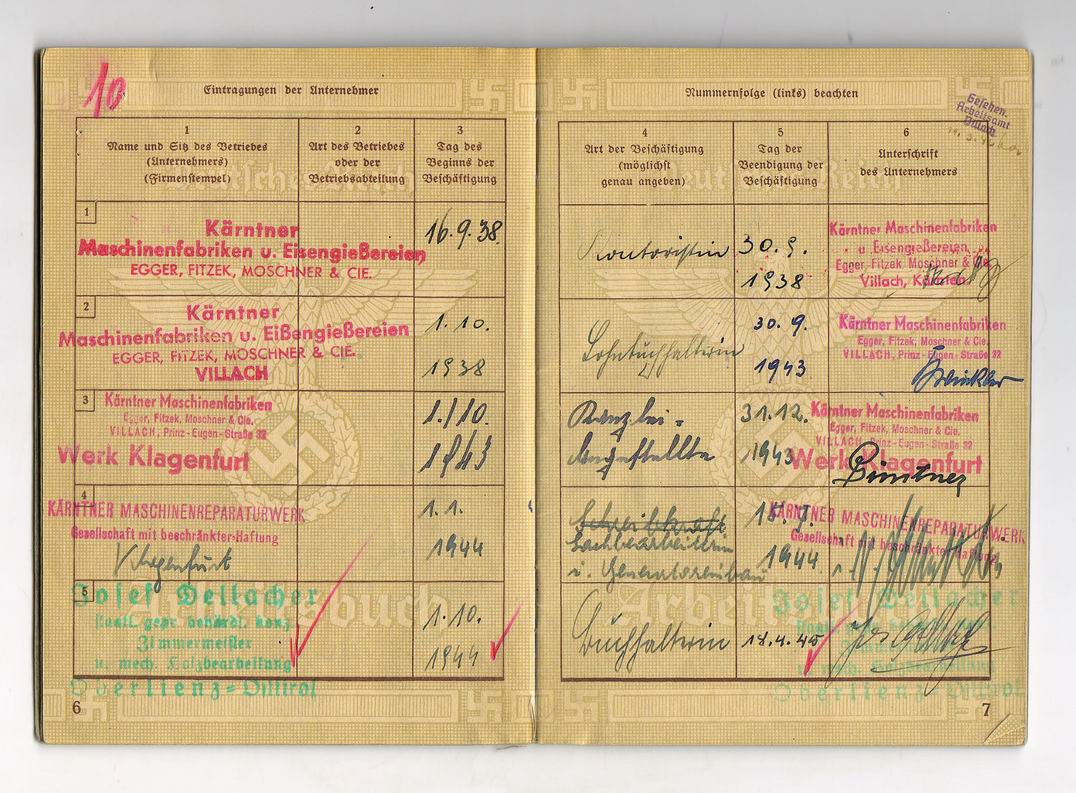 10
Eintragungen der Unternehmer
1
Name und Sitz des Betriebes
(Unternehmers)
(Firmenstempel)
2
Art des Betriebes
oder der
Betriebsabteilung
3
Tag des
Beginns der
Beschäftigung
1
Kärntner
Maschinenfabriken u. Eisengießereien
EGGER, FITZEK, MOSCHNER & CIE.
16.9.38.
2
Kärntner
Maschinenfabriken u. Eißengießereien
EGGER, FITZEK, MOSCHNER & CIE.
VILLACH
1.10.
1938
3
Kärntner Maschinenfabriken
Egger, Fitzek, Moschner & Cie.
VILLACH, Prinz-Eugen-Straße 32
Werk Klagenfurt
1./10.
1943
4
KÄRNTNER MASCHINENREPARATURWERK
Gesellschaft mit beschränkter Haftung
Klagenfurt
1.1.
1944
5
Josef Dellacher
staatl. gepr. behördl. konz.
Zimmermeister
u. mech. Holzbearbeitung
Oberlienz-Osttirol
1.10.
1944
6
Nummernfolge (links) beachten
Gesehen.
Arbeitsamt
Villach
4
Art der Beschäftigung
(möglichst
genau angeben)
5
Tag der
Beendigung der
Beschäftigung
6
Unterschrift
des Unternehmers
Kontoristin
30.9.
1938
Kärntner Maschinenfabriken
u. Eisengießereien
Egger, Fitzek, Moschner & Cie.
Villach, Kärnten
Lohnbuchhalterin
30.9.
1943
Kärntner Maschinenfabriken
Egger, Fitzek, Moschner & Cie.
VILLACH, Prinz-Eugen-Straße 32
Kanzlei-
Angestellte
31.12.
1943
Kärntner Maschinenfabriken
Egger, Fitzek, Moschner & Cie.
VILLACH, Prinz-Eugen-Straße 32
Werk Klagenfurt
Schreibkraft
Sachbearbeiterin
1944
KÄRNTNER MASCHINENREPARATURWERK
Gesellschaft mit beschränkter Haftung
Buchhalterin
18.4.45
Josef Dellacher
Oberlienz-Osttirol
7